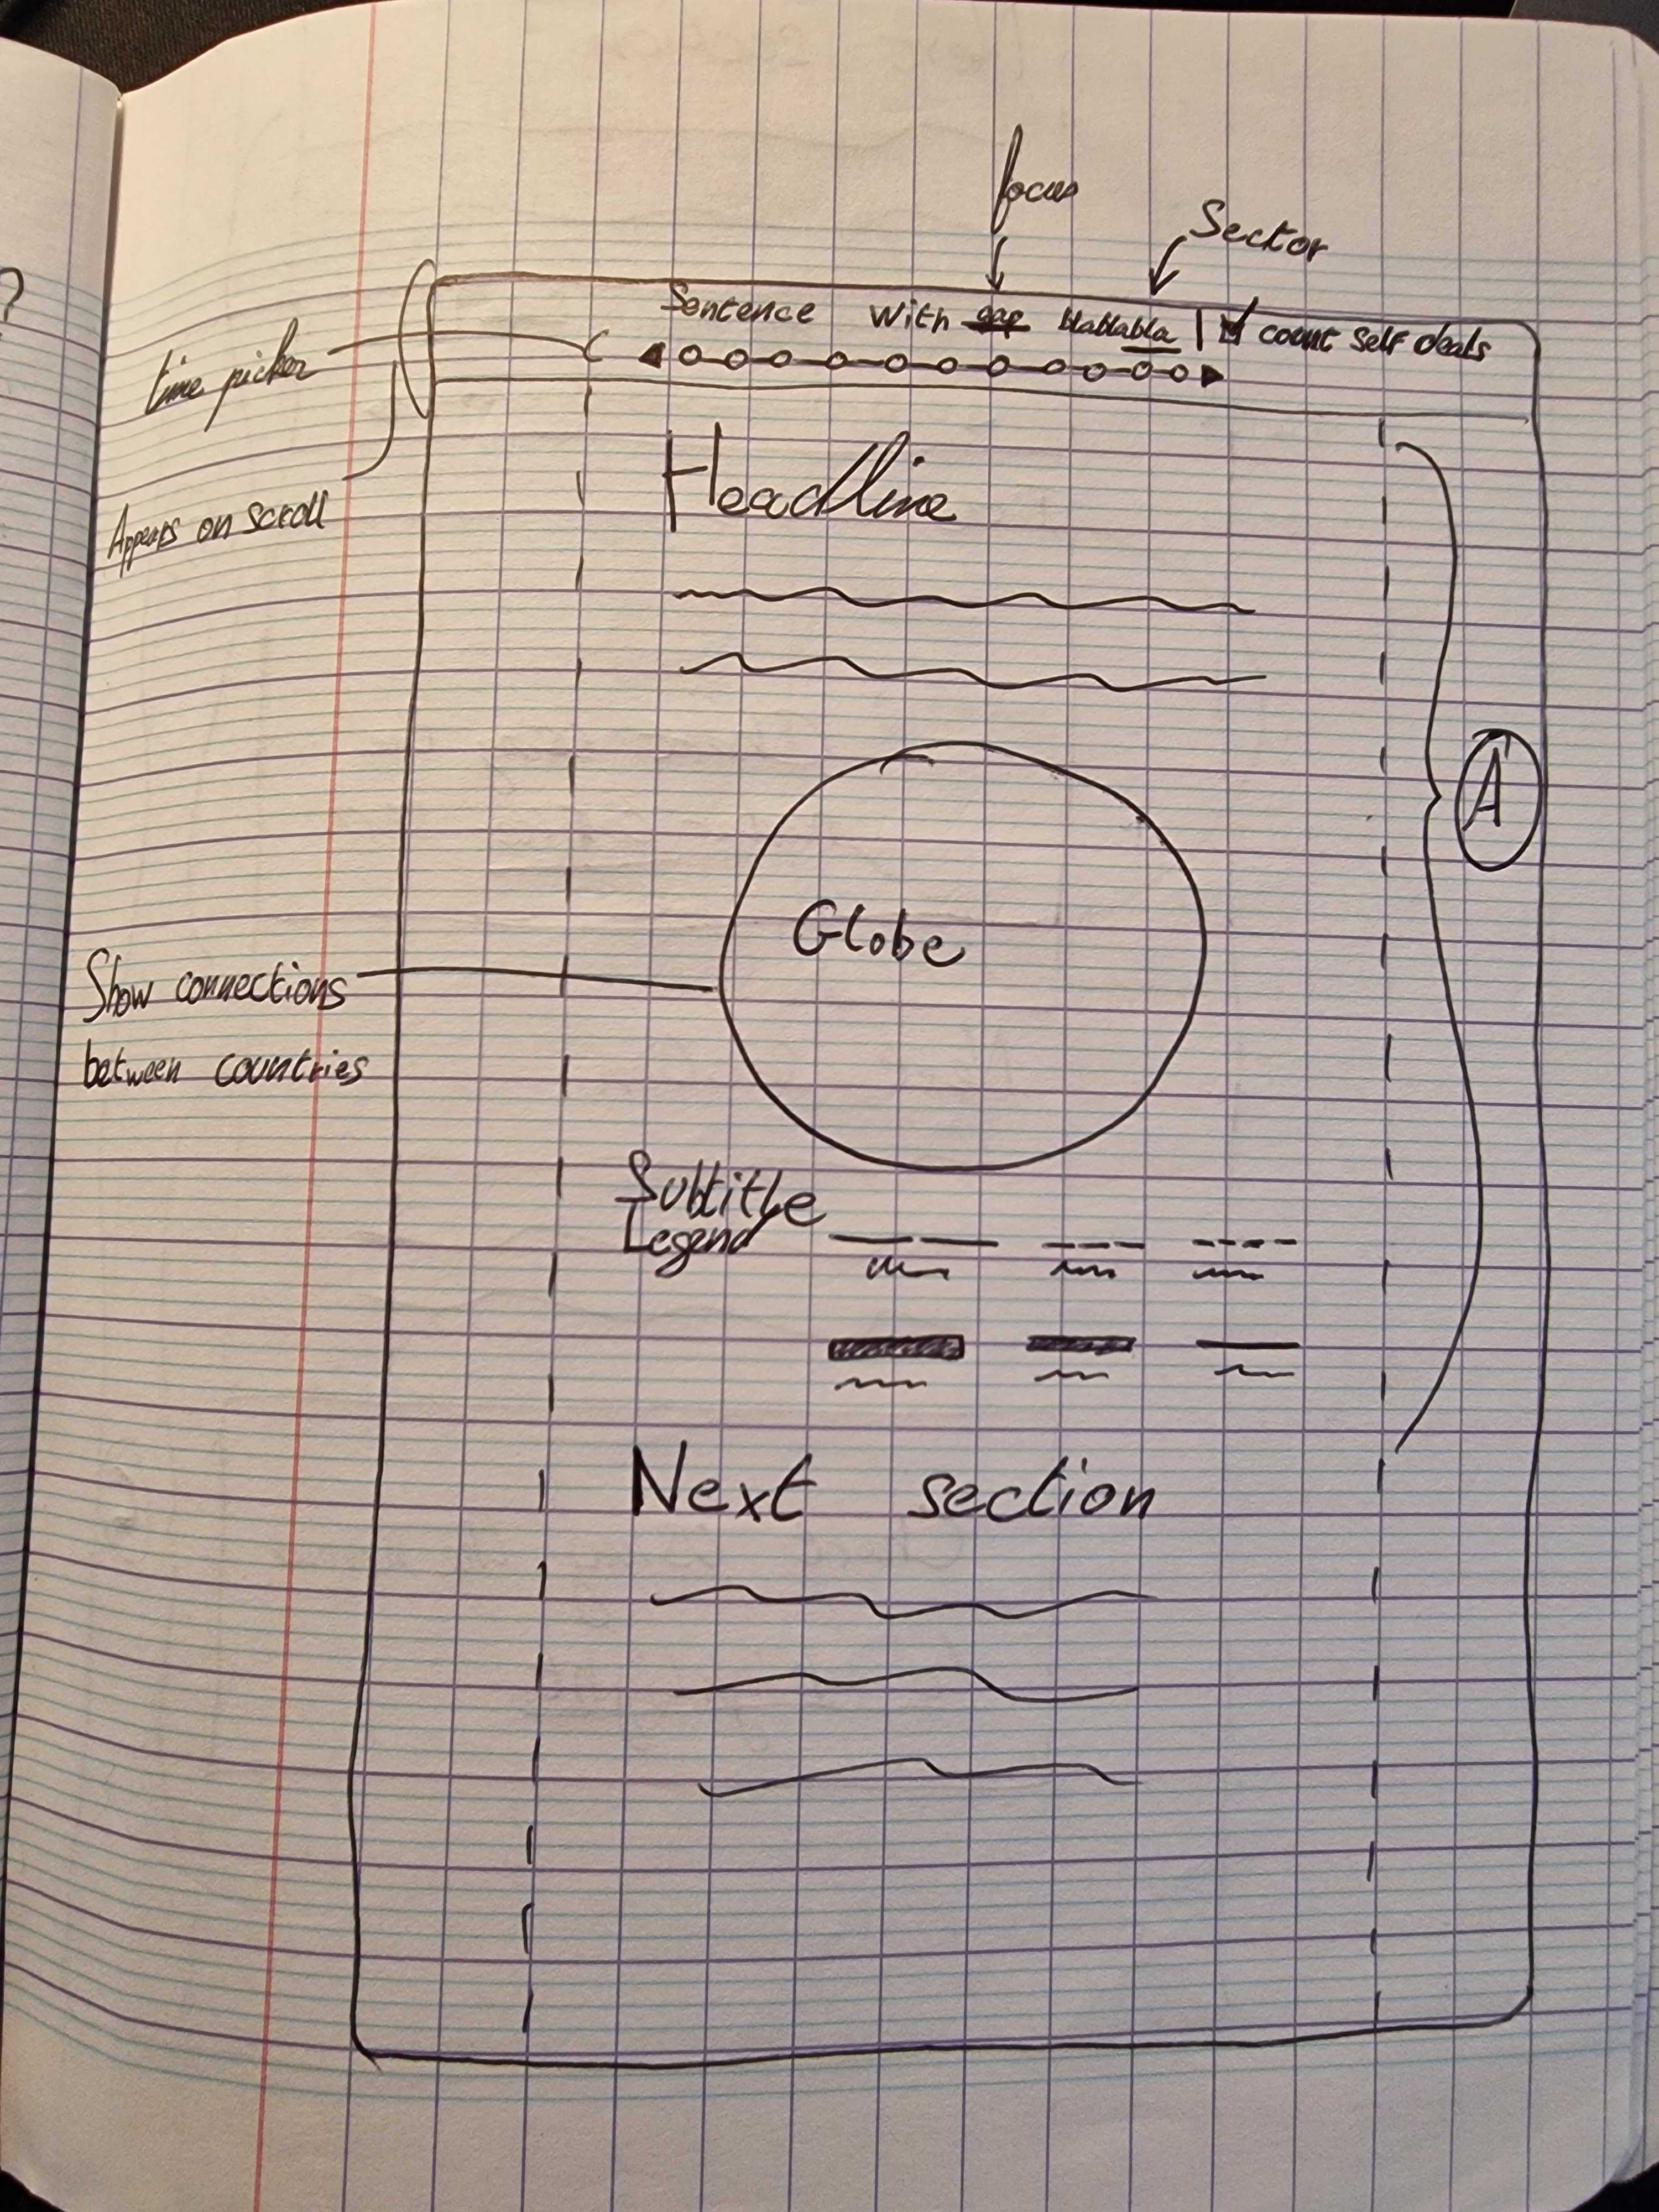 ?
focus
Sector
Sentence with gap blablabla | ☑ count self deals
time picker
Appears on scroll
Headline
A
Globe
Show connections
between countries
Subtitle
Legend
Next section